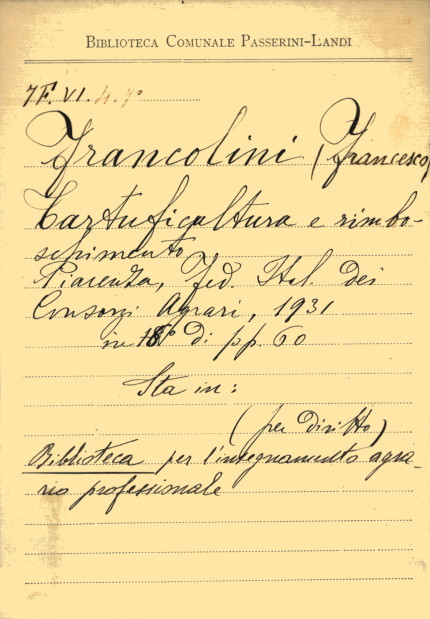 BIBLIOTECA COMUNALE PASSERINI-LANDI
7F. VI. 4. 7°
Francolini (Francesco)
Tartuficultura e rimbo-
schimento
Piacenza, Fed. Ital. dei
Consorzi Agrari, 1931
in 18° di pp. 60
Sta in:
(per diritto)
Biblioteca per l'insegnamento agra-
rio professionale